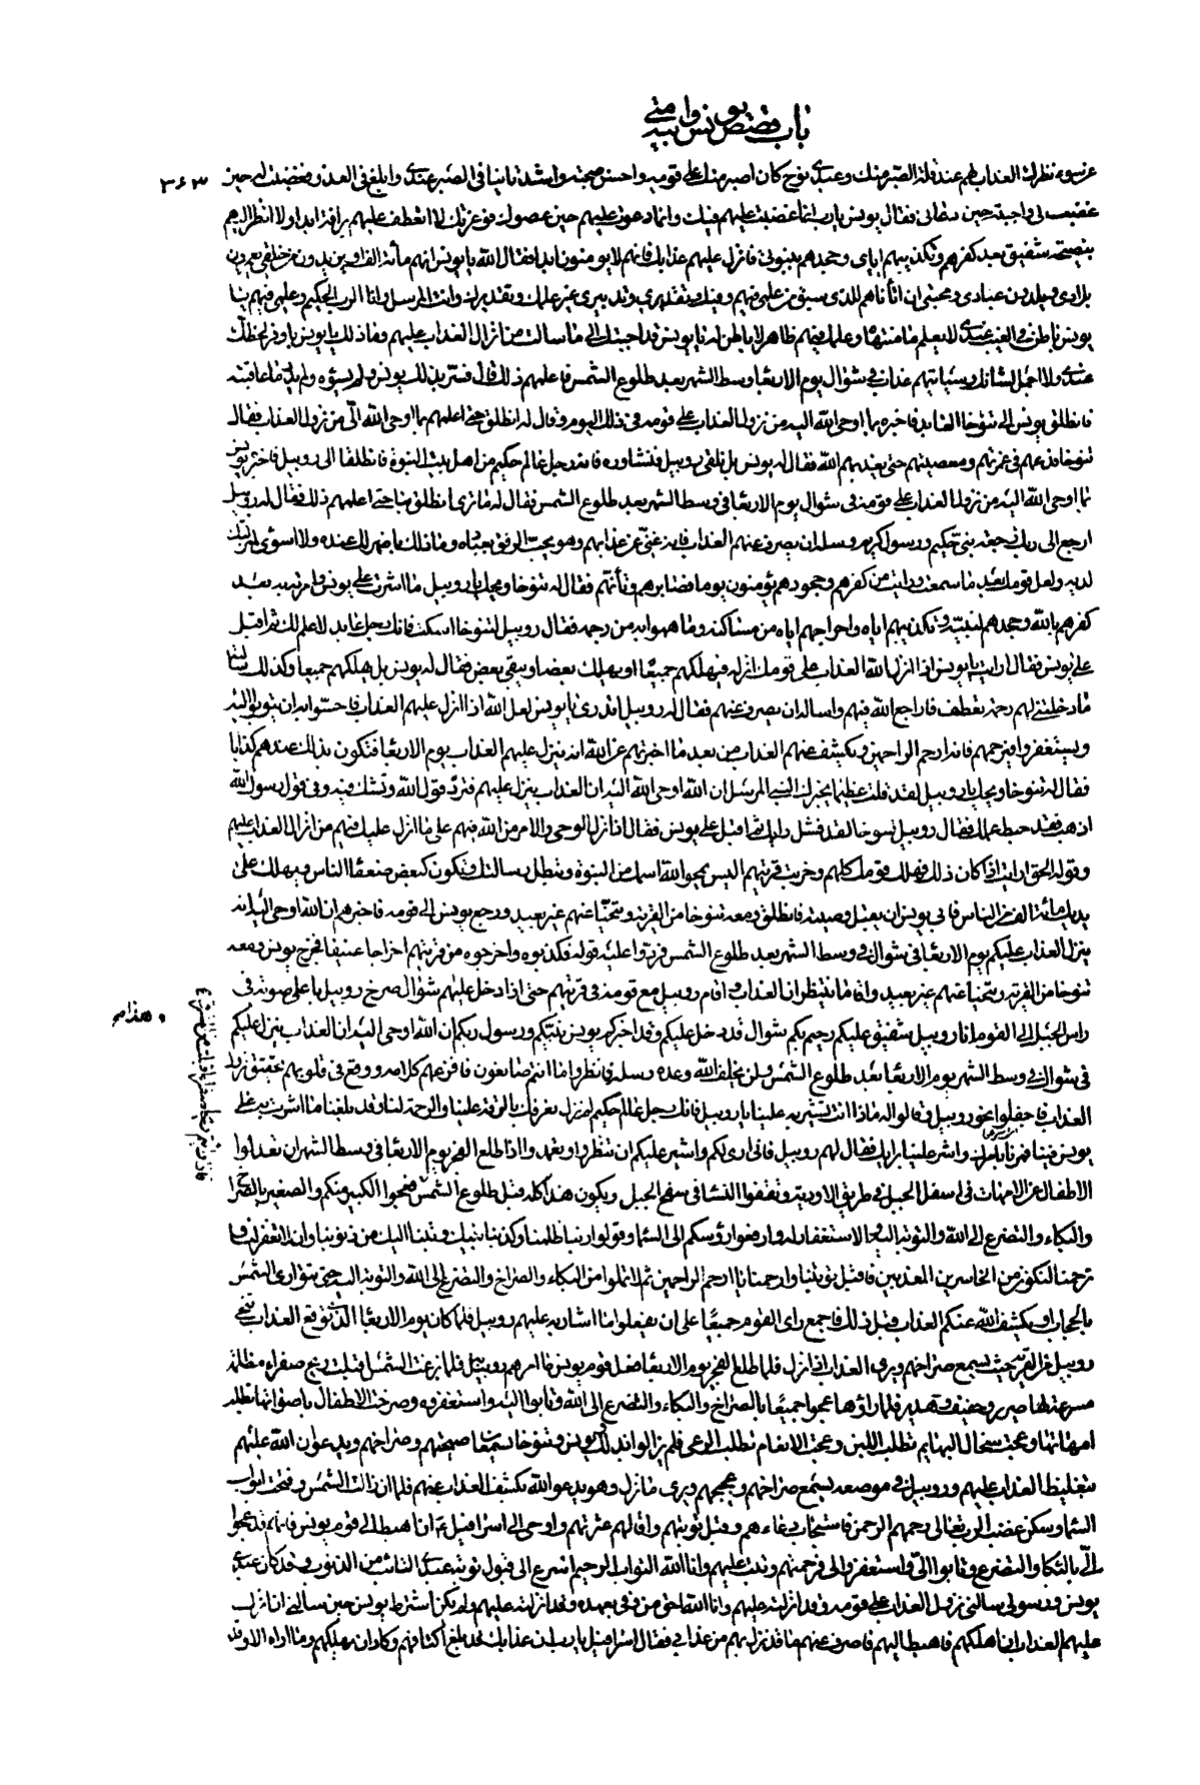 باب قصص يونس وابيه متى
عن سوء نظرك العذاب لهم عند قلة الصبر منك وعبدي نوح كان اصبر منك على قومه واحسن صحبة واشد تانيا في الصبر عندي وابلغ في العذر فغضبت له حين
٣٤٣
غضب لي واجبته حين دعاني فقال يونس يا رب انما غضبت عليهم فيك وانما دعوت عليهم حين عصوك فوعزتك لا اتعطف عليهم برافة ابدا ولا انظر اليهم
بنصيحة شفيق بعد كفرهم وتكذيبهم اياي وجحدهم بنبوتي فانزل عليهم عذابك فانهم لا يؤمنون ابدا فقال الله يا يونس انهم مائة الف او يزيدون من خلقي يعمرون
بلادي ويلدون عبادي ومحبتي ان اتاناهم للذي سبق من علمي فيهم وفيك وتقديري وتدبيري غير علمك وتقديرك وانت المرسل وانا الرب الحكيم وعلمي فيهم يا
يونس باطن في الغيب عندي لا يعلم ما منتهاه وعلمك فيهم ظاهر لا باطن له يا يونس قد اجبتك الى ما سالت من انزال العذاب عليهم وما ذلك يا يونس باوفر لحظك
عندي ولا اجمل لشانك وسياتيهم عذاب في شوال يوم الاربعا وسط الشهر بعد طلوع الشمس فاعلمهم ذلك قال فسر بذلك يونس ولم يسؤه ولم يدر ما عاقبته
فانطلق يونس الى تنوخا العابد فاخبره بما اوحى الله اليه من نزول العذاب على قومه في ذلك اليوم وقال له انطلق حتى اعلمهم بما اوحى الله الي من نزول العذاب فقال
تنوخا فدعهم في غمرتهم ومعصيتهم حتى يعذبهم الله فقال له يونس بل نلقى روبيل فنشاوره فانه رجل عالم حكيم من اهل بيت النبوة فانطلقا الى روبيل فاخبره يونس
بما اوحى الله اليه من نزول العذاب على قومه في شوال يوم الاربعا في وسط الشهر بعد طلوع الشمس فقال له ما ترى انطلق بنا حتى اعلمهم ذلك فقال له روبيل
ارجع الى ربك رجعة نبي حكيم ورسول كريم وسله ان يصرف عنهم العذاب فانه غني عن عذابهم وهو يحب الرفق بعباده وما ذلك باضر لك عنده ولا اسوى لمنزلتك
لديه ولعل قومك بعد ما سمعت ورايت من كفرهم وجحودهم يؤمنون يوما فصابرهم وتانهم فقال له تنوخا ويحك يا روبيل ما اشرت على يونس وامرته به بعد
كفرهم بالله وجحدهم لنبيه وتكذيبهم اياه واخراجهم اياه من مساكنه وما هموا به من رجمه فقال روبيل لتنوخا اسكت فانك رجل عابد لا علم لك ثم اقبل
على يونس فقال ارايت يا يونس اذا انزل الله العذاب على قومك انزله فيهلكهم جميعا او يهلك بعضا ويبقي بعض فقال له يونس بل يهلكهم جميعا وكذلك سالته
ما دخلتني لهم رحمة تعطف فاراجع الله فيهم واساله ان يصرف عنهم فقال له روبيل اتدري يا يونس لعل الله اذا انزل عليهم العذاب فاحسوا به ان يتوبوا اليه
ويستغفروا فيرحمهم فانه ارحم الراحمين ويكشف عنهم العذاب من بعد ما اخبرتهم عن الله انه ينزل عليهم العذاب يوم الاربعا فتكون بذلك عندهم كذابا
فقال له تنوخا ويحك يا روبيل لقد قلت عظيما يخبرك النبي المرسل ان الله اوحى اليه ان العذاب ينزل عليهم فترد قول الله وتشك فيه وفي قول رسول الله
اذهب فقد حبط عملك فقال روبيل لتنوخا لقد فشل رايك ثم اقبل على يونس فقال اذا نزل الوحي والامر من الله فيهم على ما انزل عليك فيهم من انزال العذاب عليهم
وقوله الحق ارايت اذا كان ذلك فهلك قومك كلهم وخربت قريتهم اليس يمحو الله اسمك من النبوة وتبطل رسالتك وتكون كبعض ضعفا الناس ويهلك على
يديك مائة الف من الناس فابى يونس ان يقبل وصيته فانطلق ومعه تنوخا من القرية وتنحيا عنهم غير بعيد ورجع يونس الى قومه فاخبرهم ان الله اوحى اليه انه
ينزل العذاب عليكم يوم الاربعا في شوال في وسط الشهر بعد طلوع الشمس فردوا عليه قوله فكذبوه واخرجوه من قريتهم اخراجا عنيفا فخرج يونس ومعه
تنوخا من القرية وتنحيا عنهم غير بعيد واقاما ينتظران العذاب واقام روبيل مع قومه في قريتهم حتى اذا دخل عليهم شوال صرخ روبيل باعلى صوته في
راس الجبل الى القوم انا روبيل شفيق عليكم رحيم بكم شوال قد دخل عليكم وقد اخبركم يونس نبيكم ورسول ربكم ان الله اوحى اليه ان العذاب ينزل عليكم
في شوال في وسط الشهر يوم الاربعا بعد طلوع الشمس ولن يخلف الله وعده رسله فانظروا ما انتم صانعون فافزعهم كلامه ووقع في قلوبهم تحقيق نزول
العذاب فاجفلوا نحو روبيل وقالوا له ماذا انت تشير به علينا يا روبيل فانك رجل عالم حكيم لم نزل نعرفك بالرقة علينا والرحمة لنا وقد بلغنا ما اشرت به على
يونس فينا فمرنا بامرك واشر علينا برايك فقال لهم روبيل فاني ارى لكم واشير عليكم ان تنظروا وتعمدوا اذا طلع الفجر يوم الاربعا في وسط الشهر ان تعزلوا
الاطفال عن الامهات في اسفل الجبل في طريق الاودية وتقفوا النسا في سفح الجبل ويكون هذا كله قبل طلوع الشمس فعجوا الكبير منكم والصغير بالصراخ
والبكاء والتضرع الى الله والتوبة اليه والاستغفار له وارفعوا رؤسكم الى السما وقولوا ربنا ظلمنا وكذبنا نبيك وتبنا اليك من ذنوبنا وان لا تغفر لنا و
ترحمنا لنكونن من الخاسرين المعذبين فاقبل توبتنا وارحمنا يا ارحم الراحمين ثم لا تملوا من البكاء والصراخ والتضرع الى الله والتوبة اليه حتى تتوارى الشمس
بالحجاب او يكشف الله عنكم العذاب قبل ذلك فاجمع راى القوم جميعا على ان يفعلوا ما اشار به عليهم روبيل فلما كان يوم الاربعا الذي توقع العذاب تنحى
روبيل من القرية حيث يسمع صراخهم ويرى العذاب اذا نزل فلما طلع الفجر يوم الاربعا فعل قوم يونس ما امرهم روبيل به فلما بزغت الشمس اقبلت ريح صفراء مظلمة
مسرعة لها صرير وحفيف وهدير فلما راوها عجوا جميعا بالصراخ والبكاء والتضرع الى الله وتابوا اليه واستغفروه وصرخت الاطفال باصواتها تطلب
امهاتها وعجت سخال البهايم تطلب اللبن وعجت الانعام تطلب الرعى فلم يزالوا بذلك ويونس وتنوخا يسمعان صيحتهم وصراخهم ويدعوان الله عليهم
بتغليظ العذاب عليهم وروبيل في موضعه يسمع صراخهم وعجيجهم ويرى ما نزل وهو يدعو الله بكشف العذاب عنهم فلما ان زالت الشمس وفتحت ابواب
السما وسكن غضب الرب تعالى رحمهم الرحمن فاستجاب دعاءهم وقبل توبتهم واقالهم عثرتهم واوحى الى اسرافيل ان اهبط الى قوم يونس فانهم قد عجوا
الي بالبكا والتضرع وتابوا الي واستغفروني فرحمتهم وتبت عليهم وانا الله التواب الرحيم اسرع الى قبول توبة عبدي التائب من الذنوب وقد كان عبدي
يونس ورسولي سالني نزول العذاب على قومه وقد انزلته عليهم وانا الله احق من وفى بعهده وقد انزلته عليهم ولم يكن اشترط يونس حين سالني ان انزل
عليهم العذاب ان اهلكهم فاهبط اليهم فاصرف عنهم ما قد نزل بهم من عذابي فقال اسرافيل يا رب ان عذابك قد بلغ اكتافهم وكاد ان يهلكهم وما اراه الا وقد